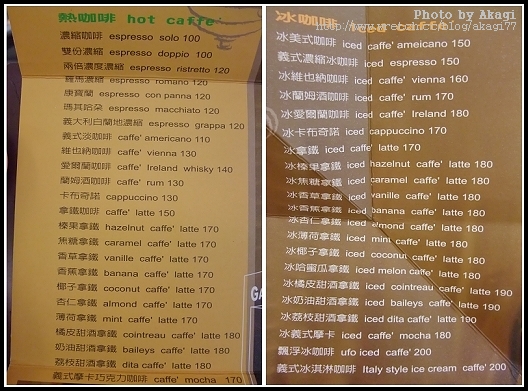 熱咖啡 hot caffe
濃縮咖啡 espresso solo 100
雙份濃縮 espresso doppio 100
兩倍濃度濃縮 espresso ristretto 120
羅馬濃縮 espresso romano 120
康寶蘭 espresso con panna 120
瑪其哈朵 espresso macchiato 120
義大利白蘭地濃縮 espresso grappa 120
義式淡咖啡 caffe' americano 110
維也納咖啡 caffe' vienna 130
愛爾蘭咖啡 caffe' Ireland whisky 140
蘭姆咖啡 caffe' rum 130
卡布奇諾 cappuccino 130
拿鐵咖啡 caffe' latte 150
榛果拿鐵 hazelnut caffe' latte 170
焦糖拿鐵 caramel caffe' latte 170
香草拿鐵 vanille caffe' latte 170
香蕉拿鐵 banana caffe' latte 170
椰子拿鐵 coconut caffe' latte 170
杏仁拿鐵 almond caffe' latte 170
薄荷拿鐵 mint caffe' latte 170
橘皮甜酒拿鐵 cointreau caffe' latte 180
奶油甜酒拿鐵 baileys caffe' latte 180
荔枝甜酒拿鐵 dita caffe' latte 180
義式摩卡巧克力咖啡 caffe' mocha 170
Photo by Akagi
冰咖啡 iced caffe
冰美式咖啡 iced caffe' ameicano 150
義式濃縮冰咖啡 iced espresso 150
冰維也納咖啡 iced caffe' vienna 160
冰蘭姆酒咖啡 iced caffe' rum 170
冰愛爾蘭咖啡 iced caffe' Ireland 180
冰卡布奇諾 iced cappuccino 170
冰拿鐵 iced caffe' latte 170
冰榛果拿鐵 iced hazelnut caffe' latte 180
冰焦糖拿鐵 iced caramel caffe' latte 180
冰香草拿鐵 iced vanille caffe' latte 180
冰香蕉拿鐵 iced banana caffe' latte 180
冰杏仁拿鐵 iced almond caffe' latte 180
冰薄荷拿鐵 iced mint caffe' latte 180
冰椰子拿鐵 iced coconut caffe' latte 180
冰哈蜜瓜拿鐵 iced melon caffe' latte 180
冰橘皮甜酒拿鐵 iced cointreau caffe' latte 190
冰奶油甜酒拿鐵 iced baileys caffe' latte 190
冰荔枝甜酒拿鐵 iced dita caffe' latte 190
冰義式摩卡 iced caffe' mocha 180
飄浮冰咖啡 ufo iced caffe' 200
義式冰淇淋咖啡 Italy style ice cream caffe' 200